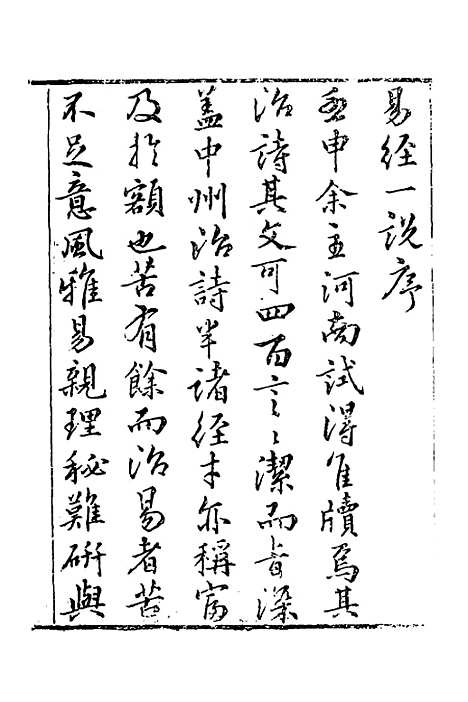 易經一說序
壬申余主河南試得隹牘焉其
治詩其文可四百言言潔而旨深
蓋中州治詩半諸經才亦稱富
及於額也苦有餘而治易者苦
不足意風雅易親理秘難研與